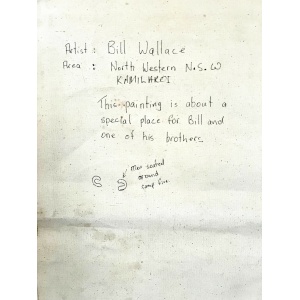 Artist : Bill Wallace
Area : North Western N.S.W
KAMILAROI
This painting is about a
special place for Bill and
one of his brothers
Men seated
around
camp fire